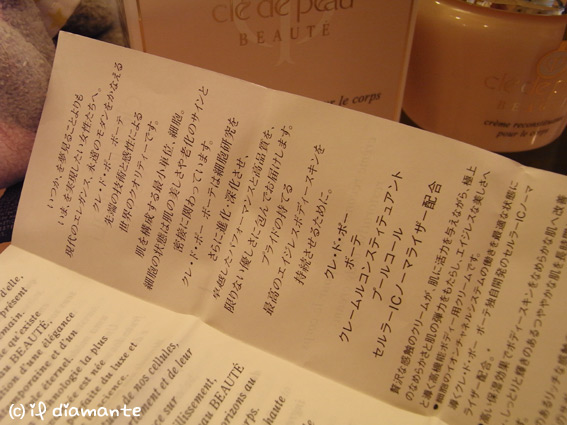 clé de peau
BEAUTÉ
le corps
clé de peau
BEAUTÉ
crème reconstituante
pour le corps
いつか、を夢見ることよりも
いま、を実現したい女性たちへ。
現代のエレガンス、永遠のモダンをかなえる
クレ・ド・ポー ボーテ
先端の技術と感性による
世界のラオリティーです。
肌を構成する最小単位、細胞。
細胞の状態は肌の美しさや老化のサインと
密接に関わっています。
クレ・ド・ポー ボーテは細胞研究を
さらに進化・深化させ、
卓越したパフォーマンスと高品質を、
限りない優しさに包んでお届けします。
プライドの持てる
最高のエイジレスボディースキンを
持続させるために。
クレ・ド・ポー
ボーテ
クレームルコンスティテュアント
プールコール
セルラーICノーマライザー配合
贅沢な感触のクリームが、肌に活力を与えながら、極上
のなめらかさと肌の弾力をもたらし、エイジレスな美しさへ
と導く高機能ボディー用クリームです。
●細胞のイオンチャネルシステムの働きを最適な状態に
導くクレ・ド・ポー ボーテ独自開発のセルラーICノーマ
ライザー配合。
●高い保湿効果でボディースキンをなめらかな肌へ改善
し、しっとりと輝きのあるつややかな肌を長時間
d'elle,
présent
main.
e existe
au BEAUTÉ,
tion d'une élégance
oraine et d'un
éternel.
ologie la plus
e est née
faite du luxe et
science.
de nos cellules,
ement et de leur
ce sur
illissement,
au BEAUTÉ
orizons au
rfs.
(c) if diamante